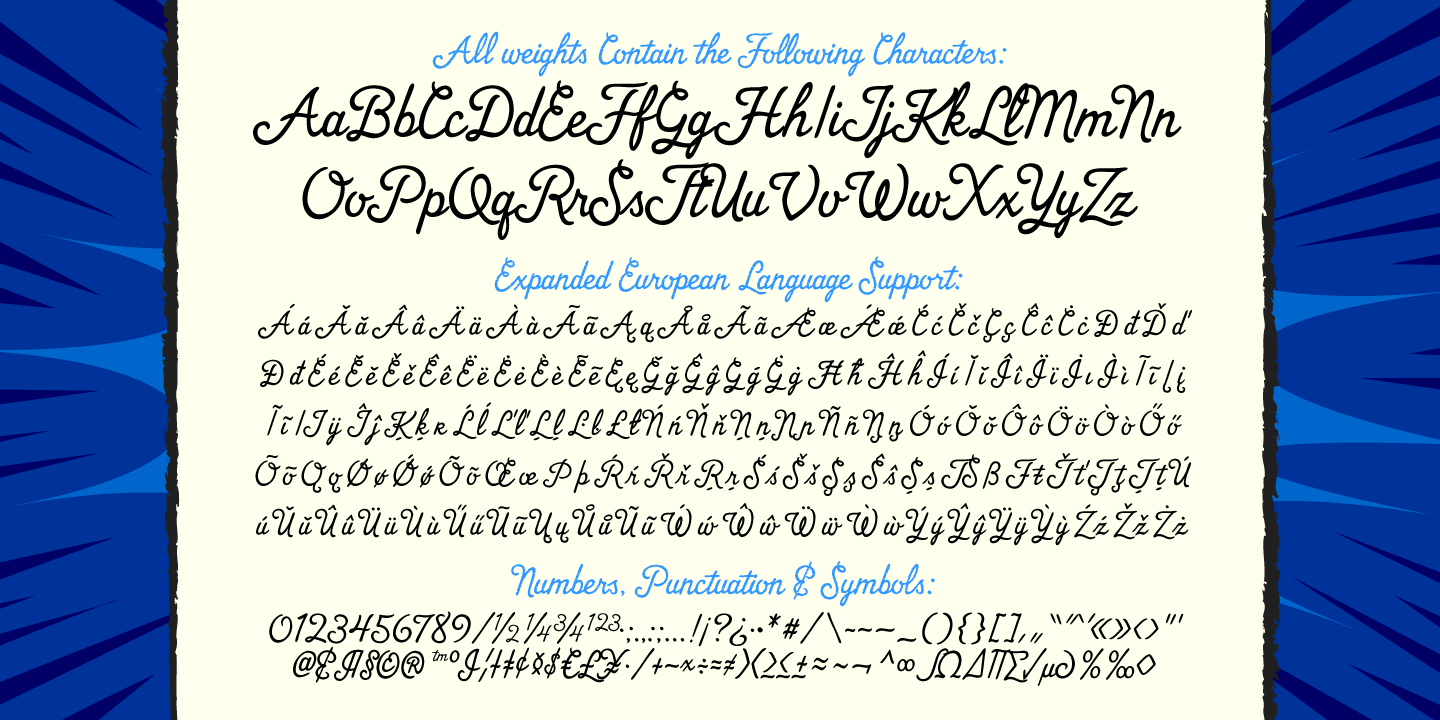 All weights Contain the Following Characters:
AaBbCcDdEeFfGgHhIiJjKkLlMmNn
OoPpQqRrSsTtUuVvWwXxYyZz
Expanded European Language Support:
ÁáĂăÂâÄäÀàĀāĄąÅåÃãÆæǼǽĆćČčÇçĈĉĊċÐđĎď
ĐđÉéĔĕĚěÊêËëĖėÈèĒēĘęĞğĜĝĢģĠġĦħĤĥÍíĬĭÎîÏïİıÌìĪīĮį
ĨĩIJÿĴĵĶķĸĹĺĽľĻļĿŀŁłŃńŇňŅņŊŋÑñÓóŎŏÔôÖöÒòŐő
ŌōǪǫØøǾǿÕõŒœÞþŔŕŘřŖŗŚśŠšŞşŜŝȘșẞßŦŧŤťŢţȚțÚ
úŬŭÛûÜüÙùŰűŪūŲųŮůŨũẂẃŴŵẄẅẀẁÝýŶŷŸÿỲỳŹźŽžŻż
Numbers, Punctuation & Symbols:
0123456789/½¼¾¹²³:;.,:;...!¡?¿·•*#/\-–—_(){}[]‚„“”‘’«»‹›"'